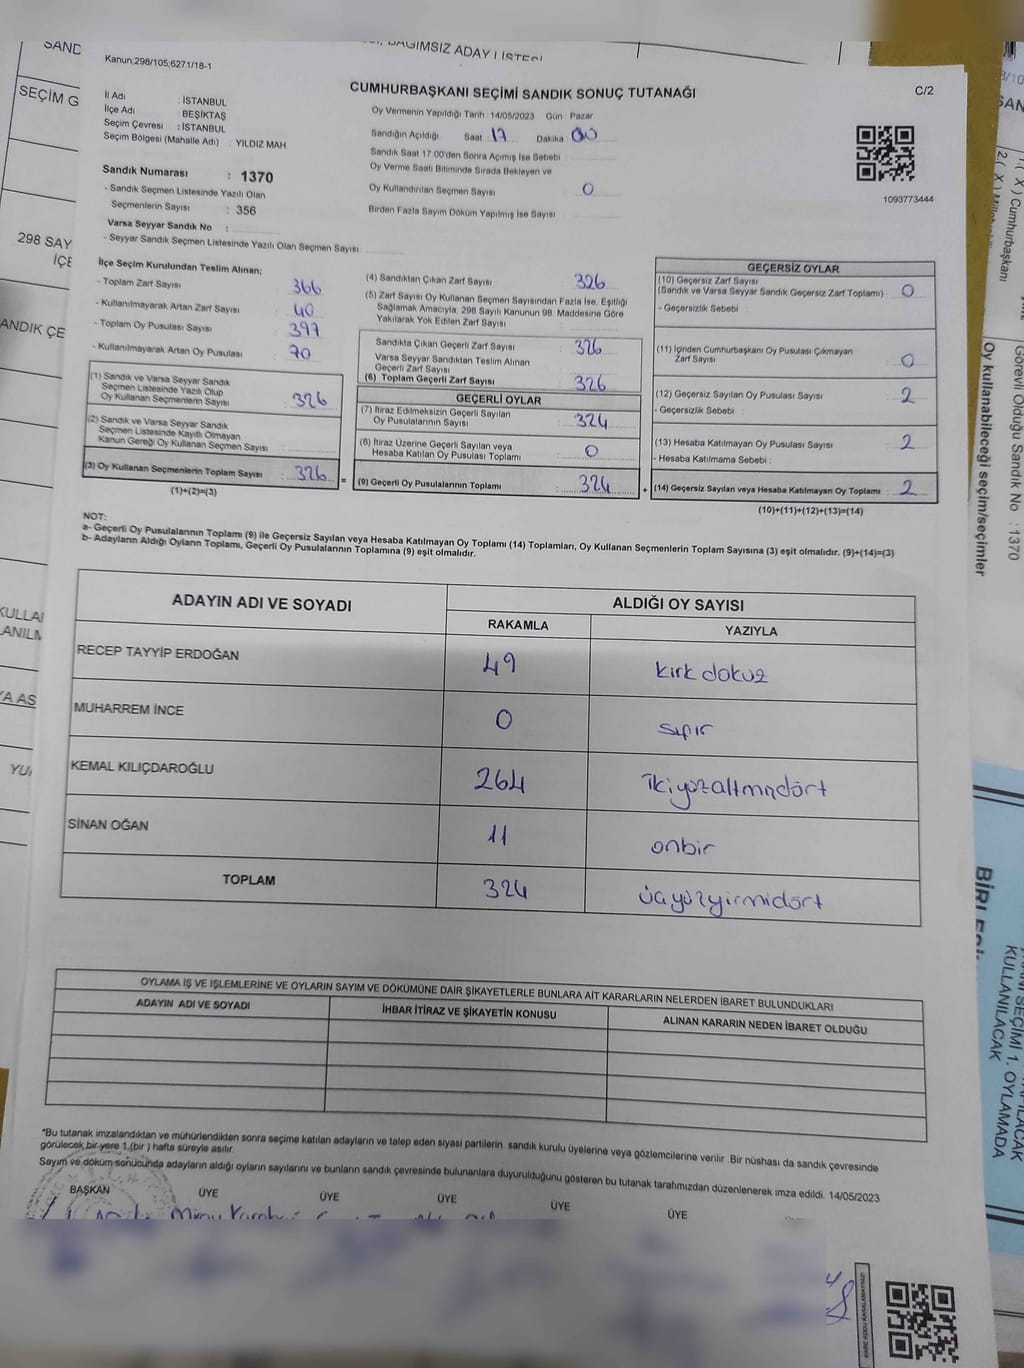 SAND
BAĞIMSIZ ADAY LİSTESİ
SEÇİM G
298 SAY
İÇE
ANDIK ÇE
KULLAI
ANILM
YA AS
YUI
Kanun;298/105;6271/18-1
CUMHURBAŞKANI SEÇİMİ SANDIK SONUÇ TUTANAĞI
C/2
İl Adı : İSTANBUL
İlçe Adı : BEŞİKTAŞ
Seçim Çevresi : İSTANBUL
Seçim Bölgesi (Mahalle Adı) : YILDIZ MAH.
Oy Vermenin Yapıldığı Tarih : 14/05/2023 Gün Pazar
Sandığın Açıldığı Saat 17 Dakika 00
Sandık Saat 17:00'den Sonra Açımış İse Sebebi
Oy Verme Saati Bitiminde Sırada Bekleyen ve
Oy Kullandırılan Seçmen Sayısı 0
Birden Fazla Sayım Döküm Yapılmış İse Sayısı
1093773444
Sandık Numarası : 1370
- Sandık Seçmen Listesinde Yazılı Olan
Seçmenlerin Sayısı : 356
Varsa Seyyar Sandık No :
- Seyyar Sandık Seçmen Listesinde Yazılı Olan Seçmen Sayısı
İlçe Seçim Kurulundan Teslim Alınan;
- Toplam Zarf Sayısı 366
- Kullanılmayarak Artan Zarf Sayısı 40
- Toplam Oy Pusulası Sayısı 397
- Kullanılmayarak Artan Oy Pusulası 70
(1) Sandık ve Varsa Seyyar Sandık
Seçmen Listesinde Yazılı Olup
Oy Kullanan Seçmenlerin Sayısı 326
(2) Sandık ve Varsa Seyyar Sandık
Seçmen Listesinde Kayıtlı Olmayan
Kanun Gereği Oy Kullanan Seçmen Sayısı
(3) Oy Kullanan Seçmenlerin Toplam Sayısı : 326 =
(1)+(2)=(3)
(4) Sandıktan Çıkan Zarf Sayısı 326
(5) Zarf Sayısı Oy Kullanan Seçmen Sayısından Fazla İse, Eşitliği
Sağlamak Amacıyla, 298 Sayılı Kanunun 98. Maddesine Göre
Yakılarak Yok Edilen Zarf Sayısı
Sandıkta Çıkan Geçerli Zarf Sayısı 326
Varsa Seyyar Sandıktan Teslim Alınan
Geçerli Zarf Sayısı
(6) Toplam Geçerli Zarf Sayısı 326
GEÇERLİ OYLAR
(7) İtiraz Edilmeksizin Geçerli Sayılan
Oy Pusulalarının Sayısı 324
(8) İtiraz Üzerine Geçerli Sayılan veya
Hesaba Katılan Oy Pusulası Toplamı 0
(9) Geçerli Oy Pusulalarının Toplamı : 324 +
GEÇERSİZ OYLAR
(10) Geçersiz Zarf Sayısı
(Sandık ve Varsa Seyyar Sandık Geçersiz Zarf Toplamı) : 0
- Geçersizlik Sebebi
(11) İçinden Cumhurbaşkanı Oy Pusulası Çıkmayan
Zarf Sayısı 0
(12) Geçersiz Sayılan Oy Pusulası Sayısı 2
- Geçersizlik Sebebi
(13) Hesaba Katılmayan Oy Pusulası Sayısı 2
- Hesaba Katılmama Sebebi :
(14) Geçersiz Sayılan veya Hesaba Katılmayan Oy Toplamı : 2
(10)+(11)+(12)+(13)=(14)
NOT:
a- Geçerli Oy Pusulalarının Toplamı (9) ile Geçersiz Sayılan veya Hesaba Katılmayan Oy Toplamı (14) Toplamları, Oy Kullanan Seçmenlerin Toplam Sayısına (3) eşit olmalıdır. (9)+(14)=(3)
b- Adayların Aldığı Oyların Toplamı, Geçerli Oy Pusulalarının Toplamına (9) eşit olmalıdır.
ADAYIN ADI VE SOYADI ALDIĞI OY SAYISI
RAKAMLA YAZIYLA
RECEP TAYYİP ERDOĞAN 49 kırk dokuz
MUHARREM İNCE 0 sıfır
KEMAL KILIÇDAROĞLU 264 ikiyüzaltmıdört
SİNAN OĞAN 11 onbir
TOPLAM 324 üçyüzyirmidört
OYLAMA İŞ VE İŞLEMLERİNE VE OYLARIN SAYIM VE DÖKÜMÜNE DAİR ŞİKAYETLERLE BUNLARA AİT KARARLARIN NELERDEN İBARET BULUNDUKLARI
ADAYIN ADI VE SOYADI İHBAR İTİRAZ VE ŞİKAYETİN KONUSU ALINAN KARARIN NEDEN İBARET OLDUĞU
*Bu tutanak imzalandıktan ve mühürlendikten sonra seçime katılan adayların ve talep eden siyasi partilerin sandık kurulu üyelerine veya gözlemcilerine verilir .Bir nüshası da sandık çevresinde
görülecek bir yere 1 (bir ) hafta süreyle asılır.
Sayım ve döküm sonucunda adayların aldığı oyların sayılarını ve bunların sandık çevresinde bulunanlara duyurulduğunu gösteren bu tutanak tarafımızdan düzenlenerek imza edildi. 14/05/2023
BAŞKAN ÜYE ÜYE ÜYE ÜYE ÜYE
1 ( X ) Cumhurbaşkanı
2 ( X )
Görevli Olduğu Sandık No : 1370
Oy kullanabileceği seçim/seçimler
SEÇİMİ 1. OYLAMADA
KULLANILACAK